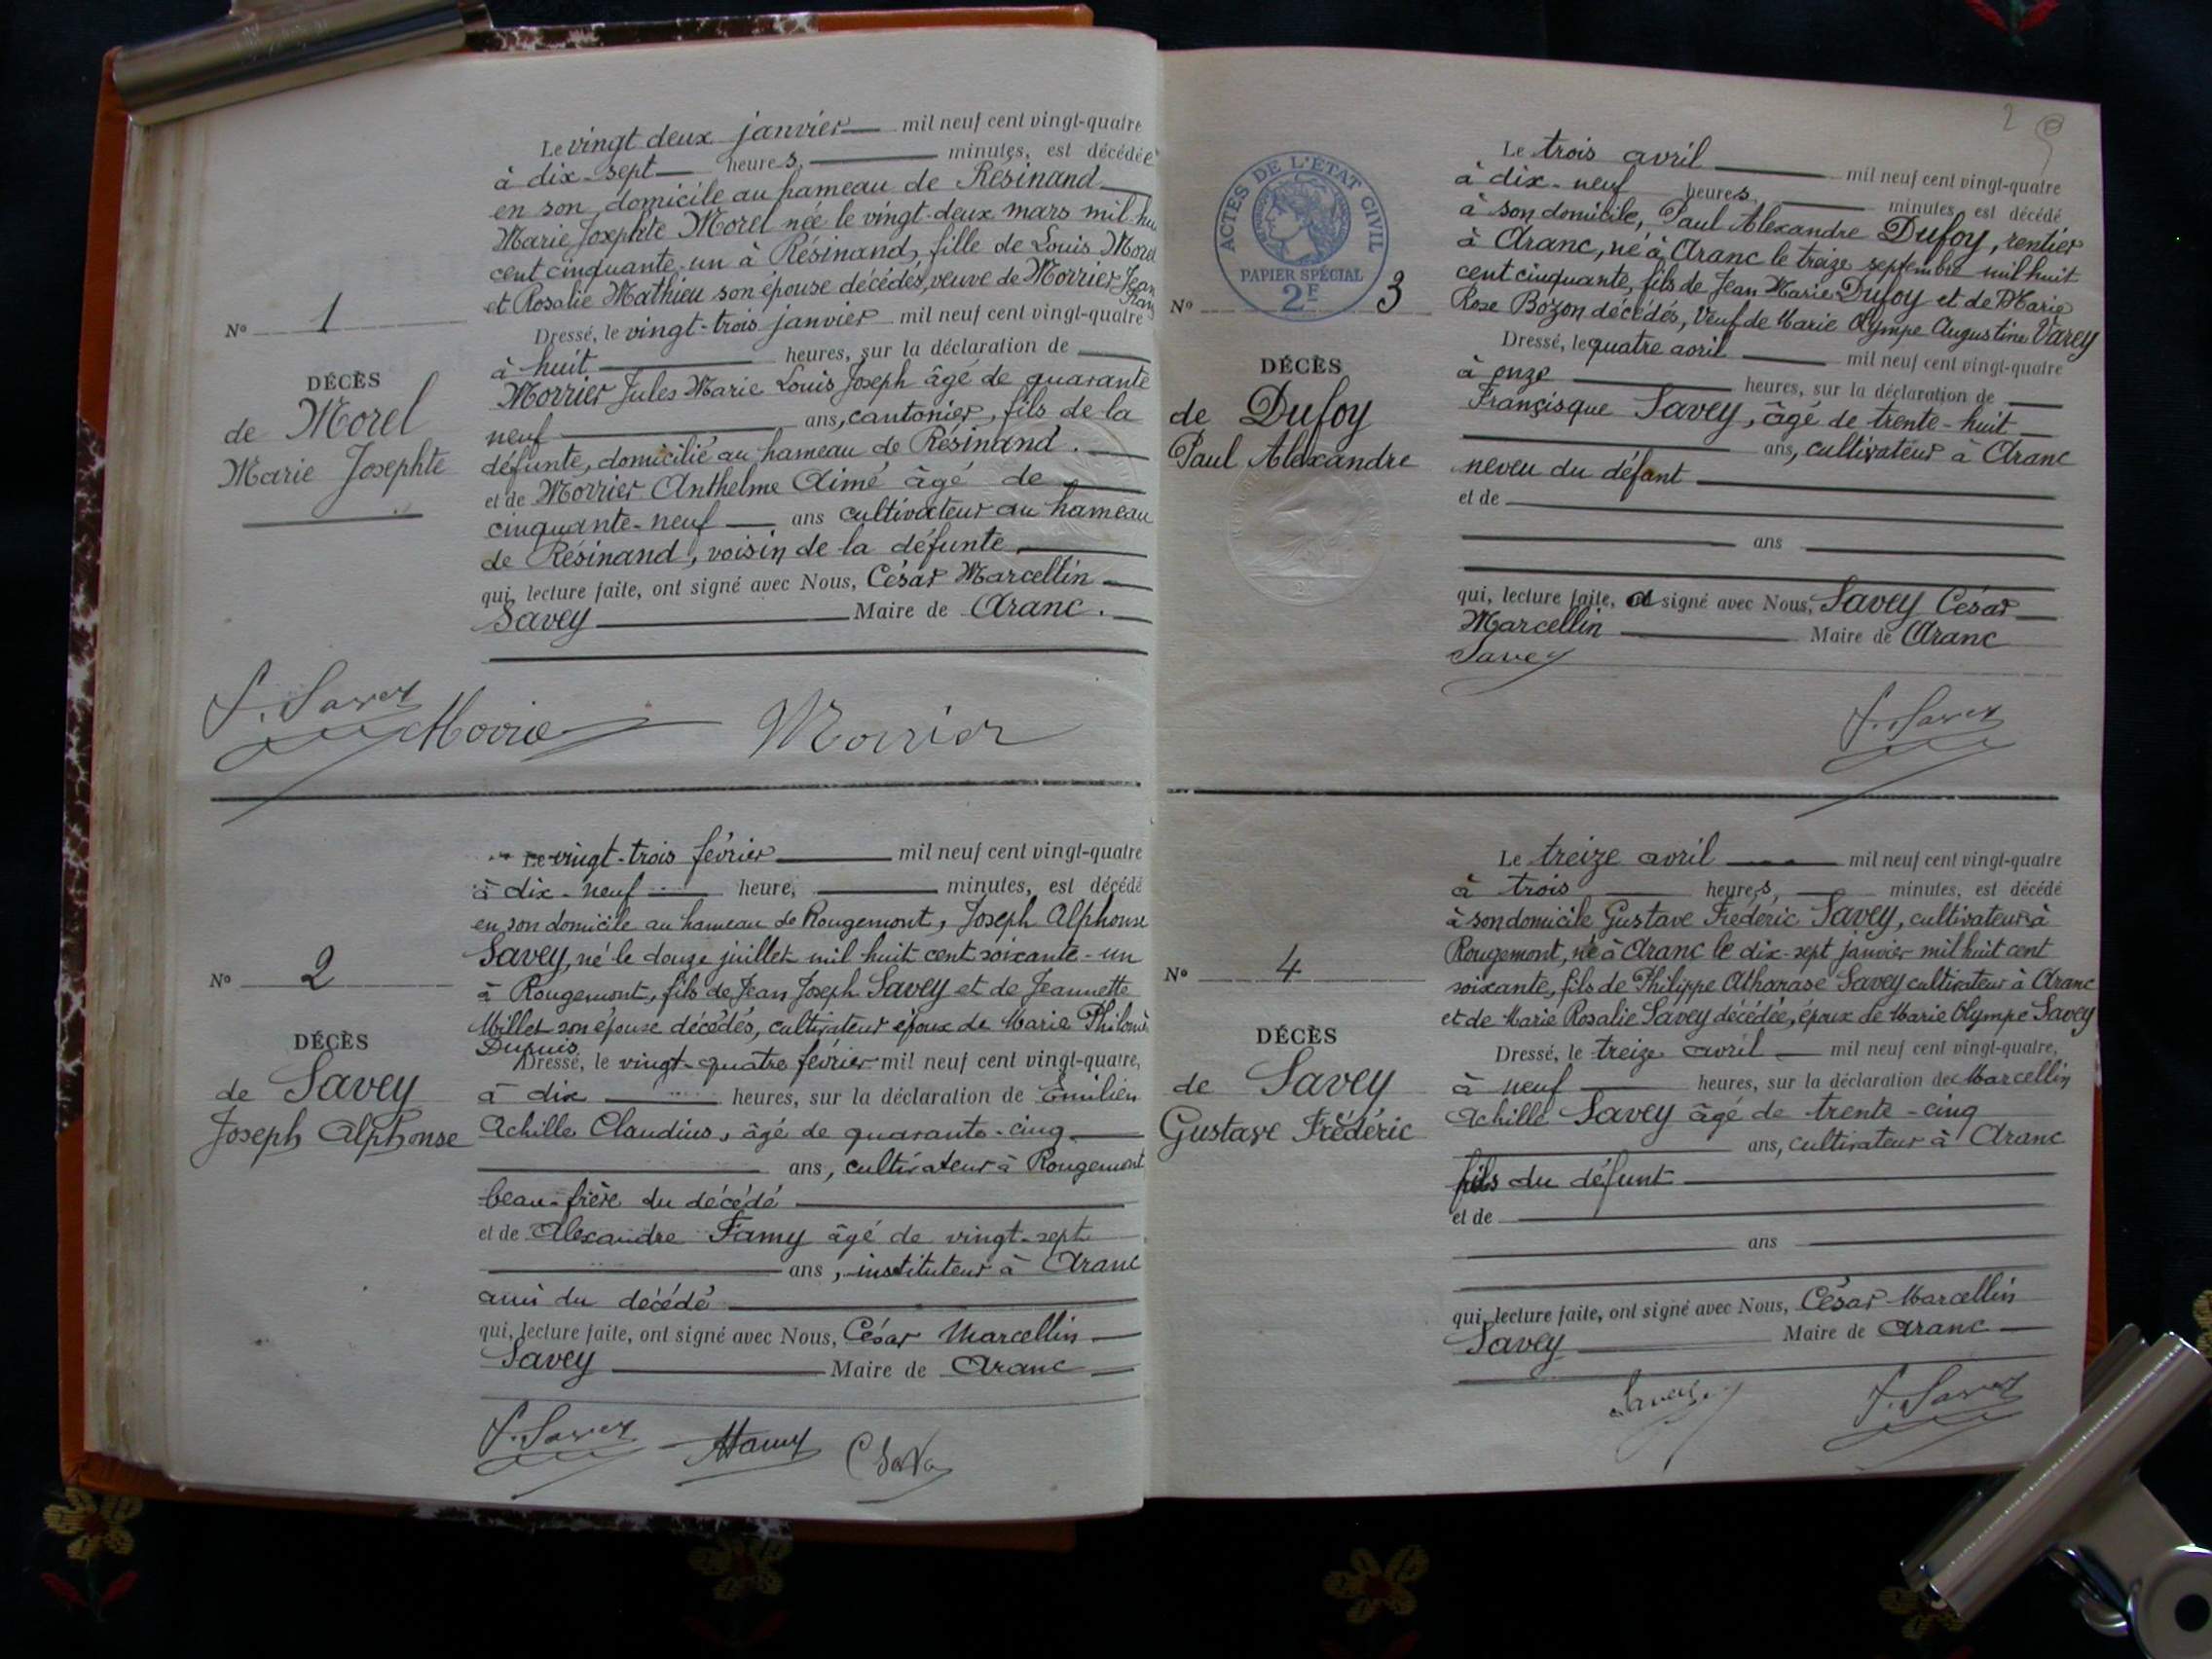 Le vingt deux janvier mil neuf cent vingt-quatre
à dix-sept heures, minutes, est décédée
en son domicile au hameau de Résinand
Marie Josephte Morel née le vingt-deux mars mil hui
cent cinquante-un à Résinand, fille de Louis Morel
et Rosalie Mathieu son épouse décédés, veuve de Morrier Jean
N° 1
Dressé, le vingt-trois janvier mil neuf cent vingt-quatre
à huit heures, sur la déclaration de
DÉCÈS
de Morel
Marie Josephte
Morrier Jules Marie Louis Joseph âgé de quarante
neuf ans, cantonier, fils de la
défunte, domicilié au hameau de Résinand.
et de Morrier Anthelme Aimé âgé de
cinquante-neuf ans cultivateur au hameau
de Résinand, voisin de la défunte
qui, lecture faite, ont signé avec Nous, César Marcellin
Savey Maire de Aranc.
Savey
Morrier
Le vingt-trois février mil neuf cent vingt-quatre
à dix-neuf heure, minutes, est décédé
en son domicile au hameau de Rougemont, Joseph Alphonse
Savey, né le douze juillet mil huit cent soixante-un
N° 2
à Rougemont, fils de Jean Joseph Savey et de Jeannette
Millet son épouse décédés, cultivateur époux de Marie Philomè
Dupuis
DÉCÈS
de Savey
Joseph Alphonse
Dressé, le vingt-quatre février mil neuf cent vingt-quatre,
à dix heures, sur la déclaration de Emilien
Achille Claudius, âgé de quarante-cinq
ans, cultivateur à Rougemont
beau-frère du décédé
et de Alexandre Famy âgé de vingt-sept
ans, instituteur à Aranc
ami du décédé
qui, lecture faite, ont signé avec Nous, César Marcellin
Savey Maire de Aranc
Savey
2
ACTES DE L'ÉTAT CIVIL
PAPIER SPÉCIAL
2F
Le trois avril mil neuf cent vingt-quatre
à dix-neuf heures, minutes, est décédé
à son domicile, Paul Alexandre Dufoy, rentier
à Aranc, né à Aranc le treize septembre mil huit
cent cinquante, fils de Jean Marie Dufoy et de Marie
N° 3
Rose Bozon décédés, Veuf de Marie Olympe Augustine Varey
DÉCÈS
de Dufoy
Paul Alexandre
Dressé, le quatre avril mil neuf cent vingt-quatre
à onze heures, sur la déclaration de
Françisque Savey, âgé de trente-huit
ans, cultivateur à Aranc
neveu du défunt
et de
ans
qui, lecture faite, a signé avec Nous, Savey César
Marcellin Maire de Aranc
Savey
Savey
Le treize avril mil neuf cent vingt-quatre
à trois heures, minutes, est décédé
à son domicile Gustave Frédéric Savey, cultivateur à
Rougemont, né à Aranc le dix-sept janvier mil huit cent
N° 4
soixante, fils de Philippe Athanase Savey cultivateur à Aranc
et de Marie Rosalie Savey décédée, époux de Marie Olympe Savey
DÉCÈS
de Savey
Gustave Frédéric
Dressé, le treize avril mil neuf cent vingt-quatre,
à neuf heures, sur la déclaration de Marcellin
Achille Savey âgé de trente-cinq
ans, cultivateur à Aranc
fils du défunt
et de
ans
qui, lecture faite, ont signé avec Nous, César Marcellin
Savey Maire de Aranc
Savey